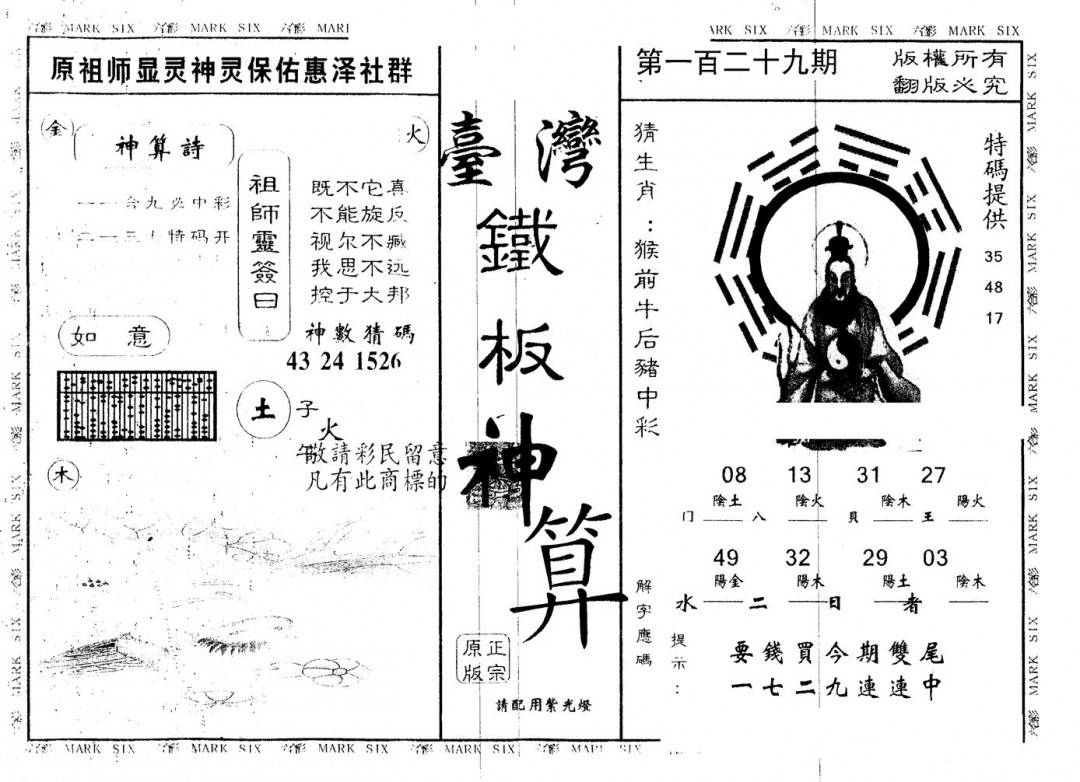 六合彩 MARK SIX 六合彩 MARK SIX 六合彩 MARK
MARK SIX 六合彩 MARK SIX 六合彩 MARK SIX
原祖师显灵神灵保佑惠泽社群
金
神算詩
火
一一合九必中彩
特码开
祖師靈簽曰
既不它真
不能旋反
视尔不臧
我思不远
控于大邦
神數猜碼
43 24 1526
如 意
土
子
火
午
敬請彩民留意
凡有此商標的
木
臺灣
鐵
板
神
算
正宗
原版
請配用紫光燈
第一百二十九期
版權所有
翻版必究
猜生肖：猴前牛后豬中彩
特碼提供
35
48
17
08 13 31 27
陰土 陰火 陰木 陽火
门 八 貝 王
49 32 29 03
陽金 陽木 陽土 陰木
水 二 日 者
解字應碼
提示：
要錢買今期雙尾
一七二九連連中
六合彩 MARK SIX 六合彩 MARK SIX 六合彩 MARK SIX 六合彩 MARK SIX 六合彩 MARK SIX